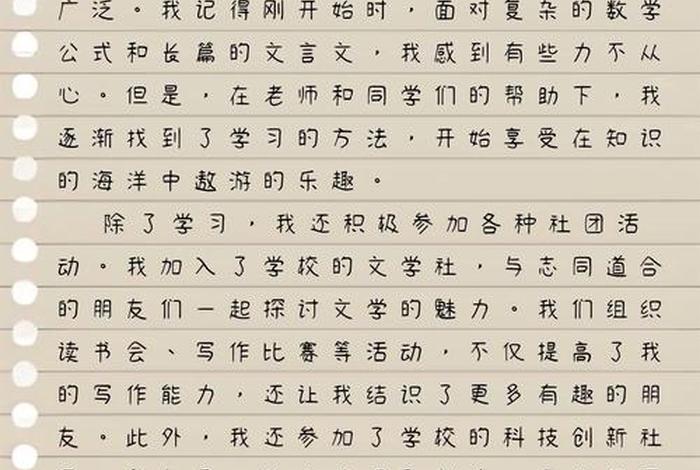 广泛。我记得刚开始时，面对复杂的数学
公式和长篇的文言文，我感到有些力不从
心。但是，在老师和同学们的帮助下，我
逐渐找到了学习的方法，开始享受在知识
的海洋中遨游的乐趣。
除了学习，我还积极参加各种社团活
动。我加入了学校的文学社，与志同道合
的朋友们一起探讨文学的魅力。我们组织
读书会、写作比赛等活动，不仅提高了我
的写作能力，还让我结识了更多有趣的朋
友。此外，我还参加了学校的科技创新社